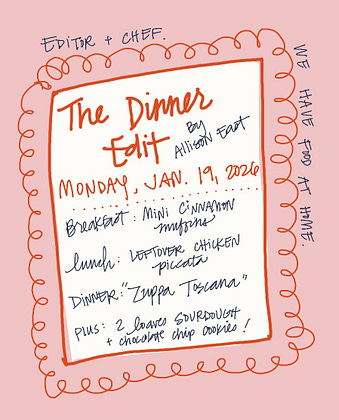 EDITOR + CHEF.
WE HAVE FOOD AT HOME.
The Dinner
Edit
By
Allison East
MONDAY, JAN. 19, 2026
Breakfast: MiNi CiNNAMON
muffins
lunch: LEFTOVER CHICKEN
piccata
DINNER: "Zuppa Toscana"
PLUS: 2 loaves SOURDOUGH
+ chocolate chip cookies!